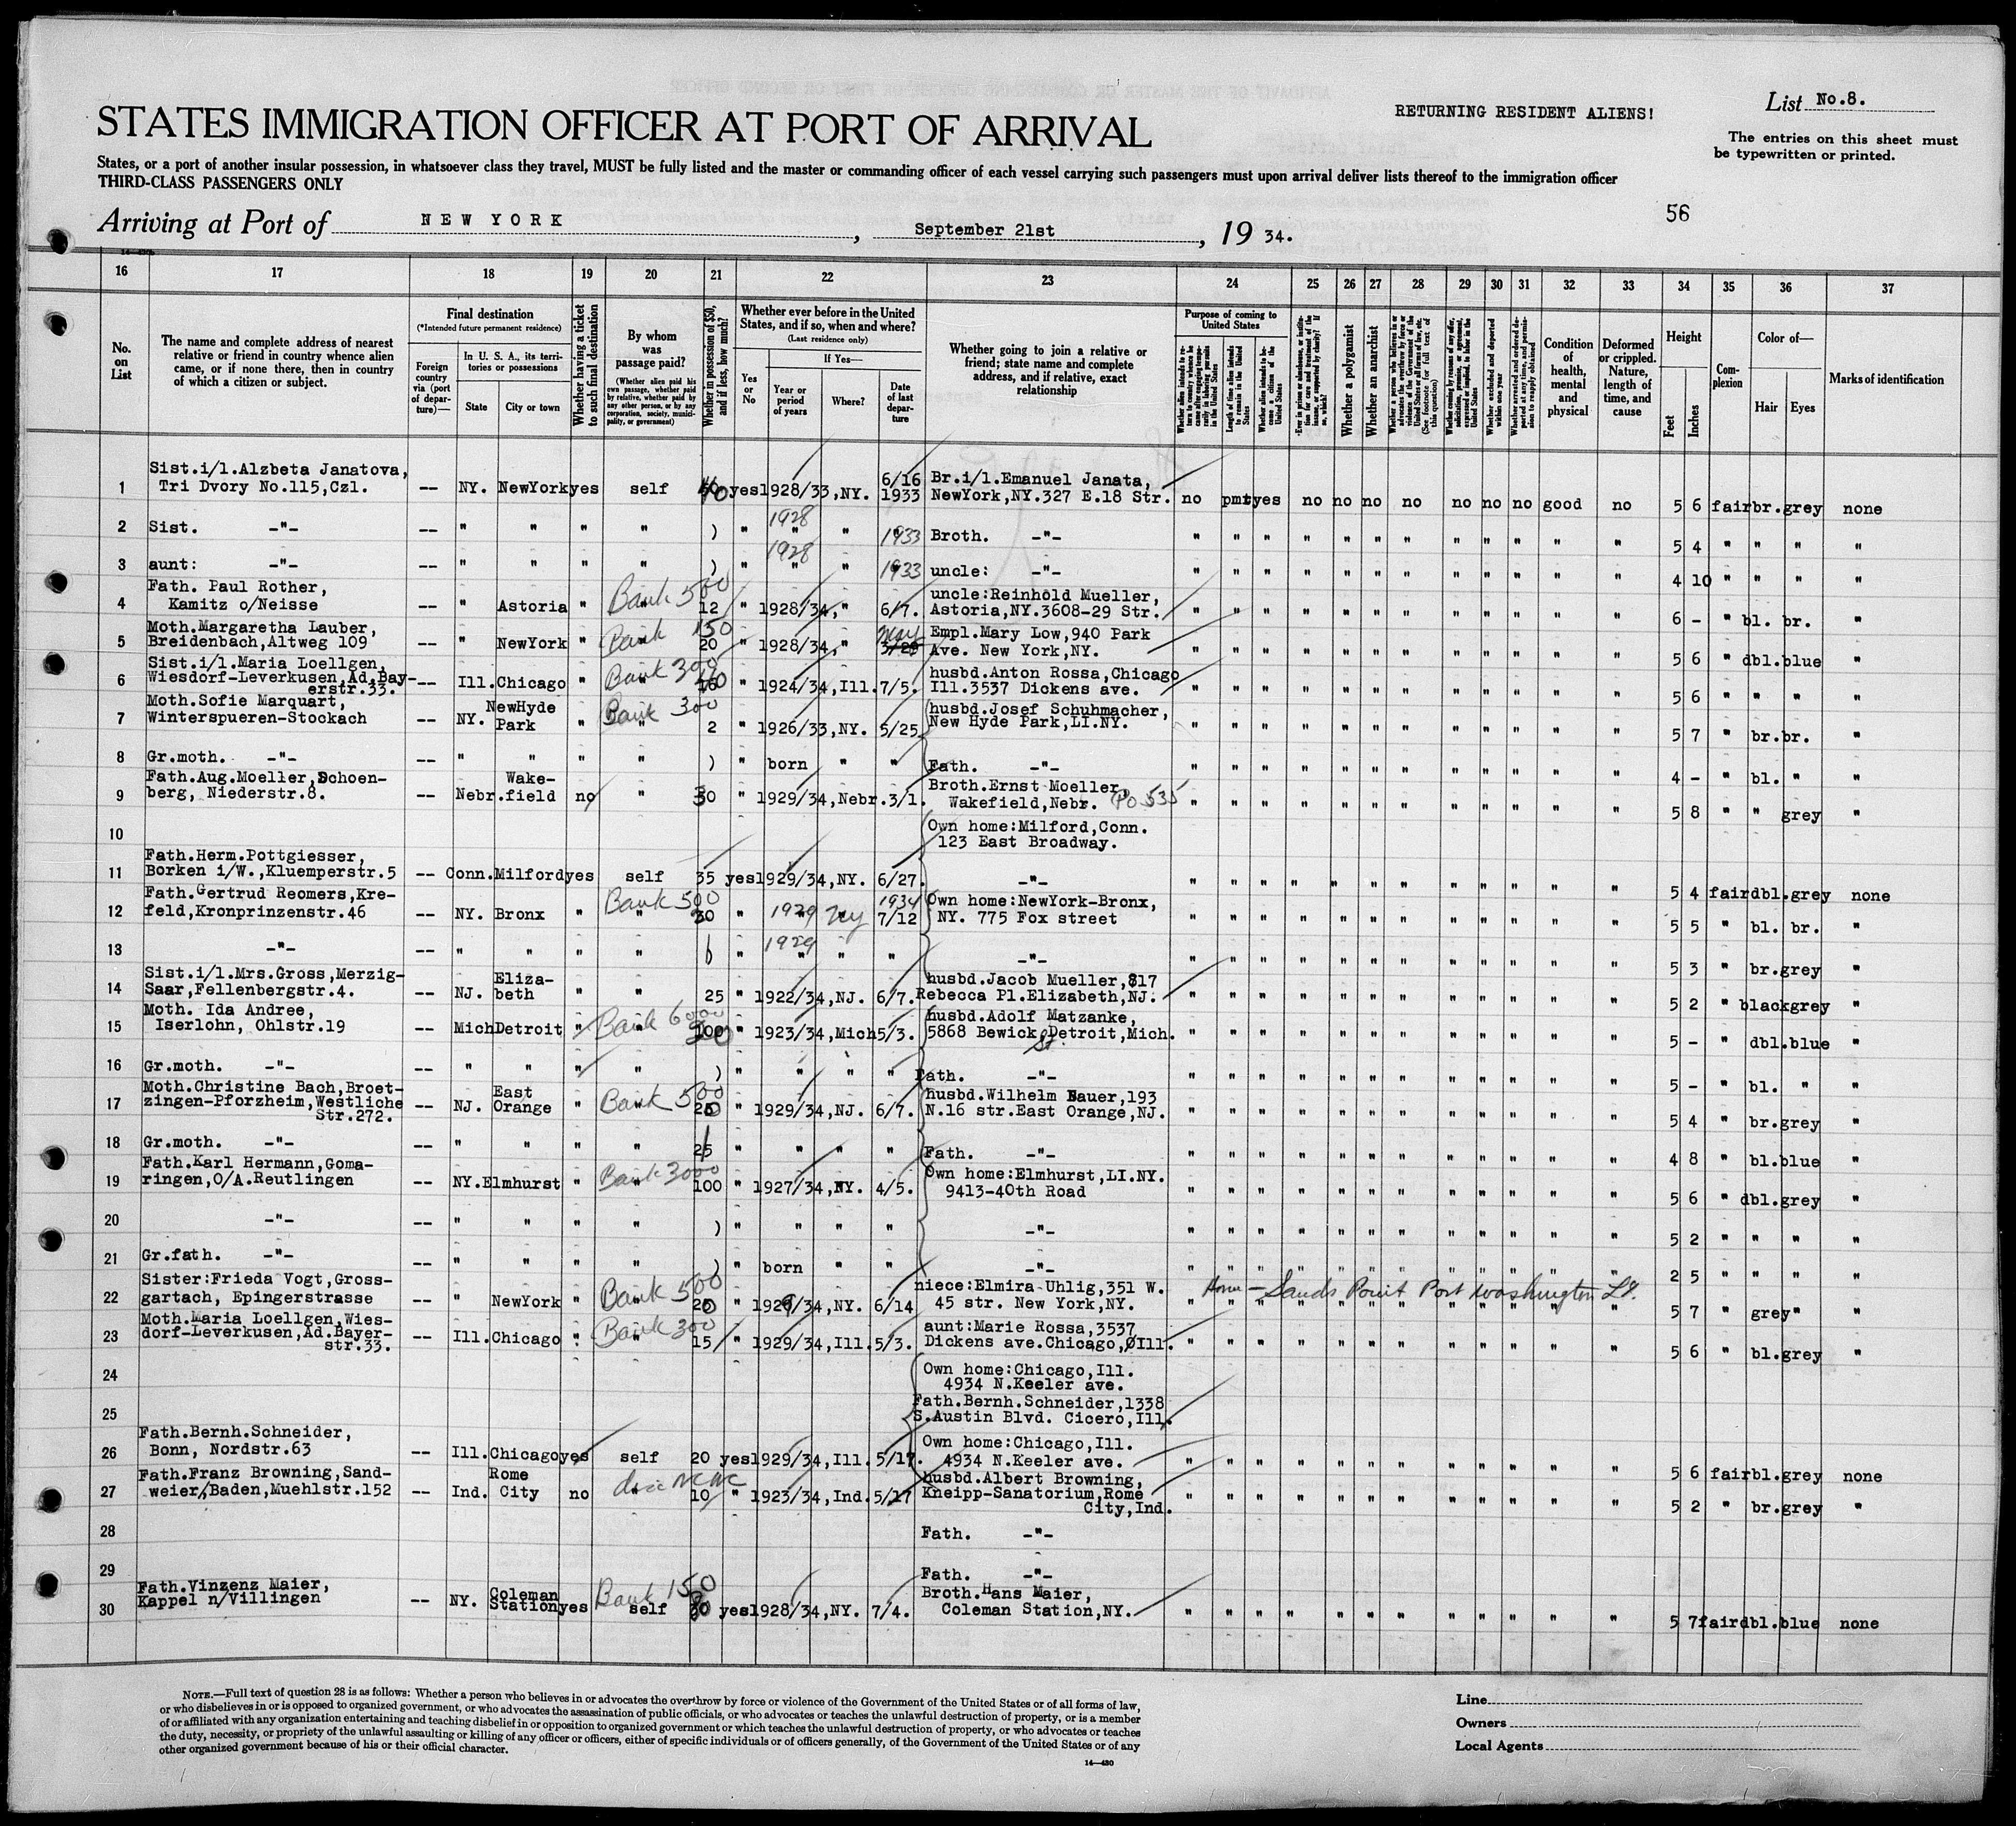 RETURNING RESIDENT ALIENS!
List No.8.
STATES IMMIGRATION OFFICER AT PORT OF ARRIVAL
The entries on this sheet must
be typewritten or printed.
States, or a port of another insular possession, in whatsoever class they travel, MUST be fully listed and the master or commanding officer of each vessel carrying such passengers must upon arrival deliver lists thereof to the immigration officer
THIRD-CLASS PASSENGERS ONLY
56
Arriving at Port of NEW YORK, September 21st, 19 34.
16 17 18 19 20 21 22 23 24 25 26 27 28 29 30 31 32 33 34 35 36 37
No. on List
The name and complete address of nearest relative or friend in country whence alien came, or if none there, then in country of which a citizen or subject.
Final destination
(*Intended future permanent residence)
Foreign country via (port of departure)—
In U. S. A., its territories or possessions
State
City or town
Whether having a ticket to such final destination
By whom was passage paid?
(Whether alien paid his own passage, whether paid by relative, whether paid by any other person, or by any corporation, society, municipality, or government)
Whether in possession of $50, and if less, how much?
Whether ever before in the United States, and if so, when and where?
(Last residence only)
Yes or No
If Yes—
Year or period of years
Where?
Date of last departure
Whether going to join a relative or friend; state name and complete address, and if relative, exact relationship
Purpose of coming to United States
Whether alien intends to return to country whence he came after engaging temporarily in laboring pursuits in the United States
Length of time alien intends to remain in the United States
Whether alien intends to become a citizen of the United States
Whether a polygamist
Whether an anarchist
Condition of health, mental and physical
Deformed or crippled. Nature, length of time, and cause
Height
Feet
Inches
Complexion
Color of—
Hair
Eyes
Marks of identification
1 Sist.i/l.Alzbeta Janatova, Tri Dvory No.115,Czl. -- NY. NewYork yes self 40 yes 1928/33,NY. 6/16 1933 Br.i/l.Emanuel Janata, NewYork,NY.327 E.18 Str. no pmt yes no no no no no no no good no 5 6 fair br. grey none
2 Sist. -"- -- " " " " ) " 1928 " " 1933 Broth. -"- " " " " " " " " " " " " 5 4 " " " "
3 aunt: -"- -- " " " " ) " 1928 " " 1933 uncle: -"- " " " " " " " " " " " " 4 10 " " " "
4 Fath. Paul Rother, Kamitz o/Neisse -- " Astoria " Bank 500 " 12 " 1928/34," 6/7. uncle:Reinhold Mueller, Astoria,NY.3608-29 Str. " " " " " " " " " " " " 6 - " bl. br. "
5 Moth.Margaretha Lauber, Breidenbach,Altweg 109 -- " NewYork " Bank 150 " 20 " 1928/34," May Empl.Mary Low,940 Park Ave. New York,NY. " " " " " " " " " " " " 5 6 " dbl.blue "
6 Sist.i/l.Maria Loellgen, Wiesdorf-Leverkusen,Ad.Bayerstr.33. -- Ill.Chicago " Bank 300 " " 1924/34,Ill.7/5. husbd.Anton Rossa,Chicago Ill.3537 Dickens ave. " " " " " " " " " " " " 5 6 " " " "
7 Moth.Sofie Marquart, Winterspueren-Stockach -- NY. NewHyde Park " Bank 300 " 2 " 1926/33,NY. 5/25. husbd.Josef Schuhmacher, New Hyde Park,LI.NY. " " " " " " " " " " " " 5 7 " br.br. "
8 Gr.moth. -"- -- " " " " ) " born " " Fath. -"- " " " " " " " " " " " " 4 - " bl. " "
9 Fath.Aug.Moeller,Schoenberg, Niederstr.8. -- Nebr. Wakefield no " 30 " 1929/34,Nebr.3/1. Broth.Ernst Moeller, Wakefield,Nebr. Po 535 " " " " " " " " " " " " 5 8 " " grey "
10 Own home:Milford,Conn. 123 East Broadway.
11 Fath.Herm.Pottgiesser, Borken i/W.,Kluemperstr.5 -- Conn.Milford yes self 35 yes 1929/34,NY. 6/27. -"- " " " " " " " " " " " " 5 4 fair dbl.grey none
12 Fath.Gertrud Reomers,Krefeld,Kronprinzenstr.46 -- NY. Bronx " Bank 500 " 30 " 1929 " NY 1934 7/12 Own home:NewYork-Bronx, NY. 775 Fox street " " " " " " " " " " " " 5 5 " bl. br. "
13 -"- -- " " " " ) " 1929 " " " -"- " " " " " " " " " " " " 5 3 " br.grey "
14 Sist.i/l.Mrs.Gross,Merzig-Saar,Fellenbergstr.4. -- NJ. Elizabeth " " 25 " 1922/34,NJ. 6/7. husbd.Jacob Mueller,817 Rebecca Pl.Elizabeth,NJ. " " " " " " " " " " " " 5 2 " black grey "
15 Moth. Ida Andree, Iserlohn, Ohlstr.19 -- Mich Detroit " Bank 6000 " " 1923/34,Mich 5/3. husbd.Adolf Matzanke, 5868 Bewick St. Detroit,Mich. " " " " " " " " " " " " 5 - " dbl.blue "
16 Gr.moth. -"- -- " " " " ) " " " " Fath. -"- " " " " " " " " " " " " 5 - " bl. " "
17 Moth.Christine Bach,Broetzingen-Pforzheim,Westliche Str.272. -- NJ. East Orange " Bank 500 " 20 " 1929/34,NJ. 6/7. husbd.Wilhelm Bauer,193 N.16 str.East Orange,NJ. " " " " " " " " " " " " 5 4 " br.grey "
18 Gr.moth. -"- -- " " " " 25 " " " " Fath. -"- " " " " " " " " " " " " 4 8 " bl.blue "
19 Fath.Karl Hermann,Gomaringen,O/A.Reutlingen -- NY.Elmhurst " Bank 3000 " 100 " 1927/34,NY. 4/5. Own home:Elmhurst,LI.NY. 9413-40th Road " " " " " " " " " " " " 5 6 " dbl.grey "
20 -"- -- " " " " ) " " " " -"- " " " " " " " " " " " " 5 2 " " " "
21 Gr.fath. -"- -- " " " " ) " born " " -"- " " " " " " " " " " " " 2 5 " " " "
22 Sister:Frieda Vogt,Grossgartach, Epingerstrasse -- " NewYork " Bank 500 " 20 " 1929/34,NY. 6/14 niece:Elmira Uhlig,351 W. 45 str. New York,NY. Home - Sands Point Port Washington L.I. " " " " " " " " " " " " 5 7 " grey " "
23 Moth.Maria Loellgen,Wiesdorf-Leverkusen,Ad.Bayerstr.33. -- Ill.Chicago " Bank 300 " 15 " 1929/34,Ill.5/3. aunt:Marie Rossa,3537 Dickens ave.Chicago,Ill. " " " " " " " " " " " " 5 6 " bl.grey "
24 Own home:Chicago,Ill. 4934 N.Keeler ave.
25 Fath.Bernh.Schneider,1338 S.Austin Blvd. Cicero,Ill.
26 Fath.Bernh.Schneider, Bonn, Nordstr.63 -- Ill.Chicago yes self 20 yes 1929/34,Ill.5/17. Own home:Chicago,Ill. 4934 N.Keeler ave. " " " " " " " " " " " " 5 6 fair bl.grey none
27 Fath.Franz Browning,Sandweier/Baden,Muehlstr.152 -- Ind. Rome City no " 10 " 1923/34,Ind.5/17 husbd.Albert Browning, Kneipp-Sanatorium,Rome City,Ind. " " " " " " " " " " " " 5 2 " br.grey "
28 Fath. -"-
29 Fath. -"-
30 Fath.Vinzenz Maier, Kappel n/Villingen -- NY. Coleman Station yes Bank 150 self yes 1928/34,NY. 7/4. Broth.Hans Maier, Coleman Station,NY. " " " " " " " " " " " " 5 7 fair dbl.blue none
NOTE.—Full text of question 28 is as follows: Whether a person who believes in or advocates the overthrow by force or violence of the Government of the United States or of all forms of law,
or who disbelieves in or is opposed to organized government, or who advocates the assassination of public officials, or who advocates or teaches the unlawful destruction of property, or is a member
of or affiliated with any organization entertaining and teaching disbelief in or opposition to organized government or which teaches the unlawful destruction of property, or who advocates or teaches
the duty, necessity, or propriety of the unlawful assaulting or killing of any officer or officers, either of specific individuals or of officers generally, of the Government of the United States or of any
other organized government because of his or their official character.
14—430
Line
Owners
Local Agents